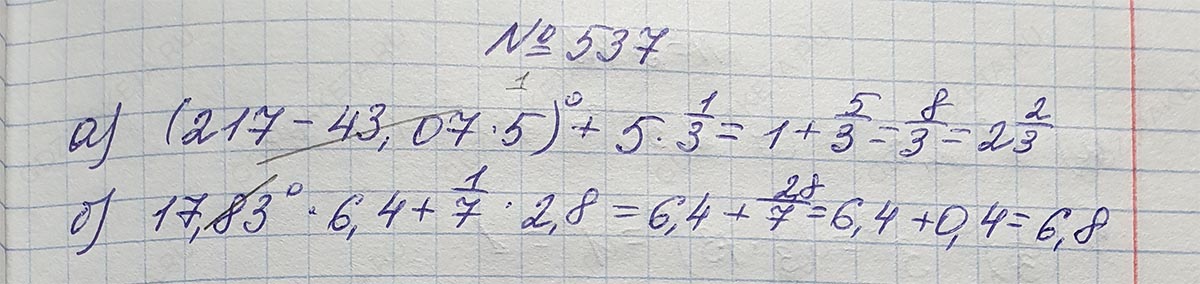 № 537
1
а) (217 - 43,07 · 5)⁰ + 5 · 1/3 = 1 + 5/3 = 8/3 = 2 2/3
б) 17,83⁰ · 6,4 + 1/7 · 2,8 = 6,4 + 28/7 = 6,4 + 0,4 = 6,8